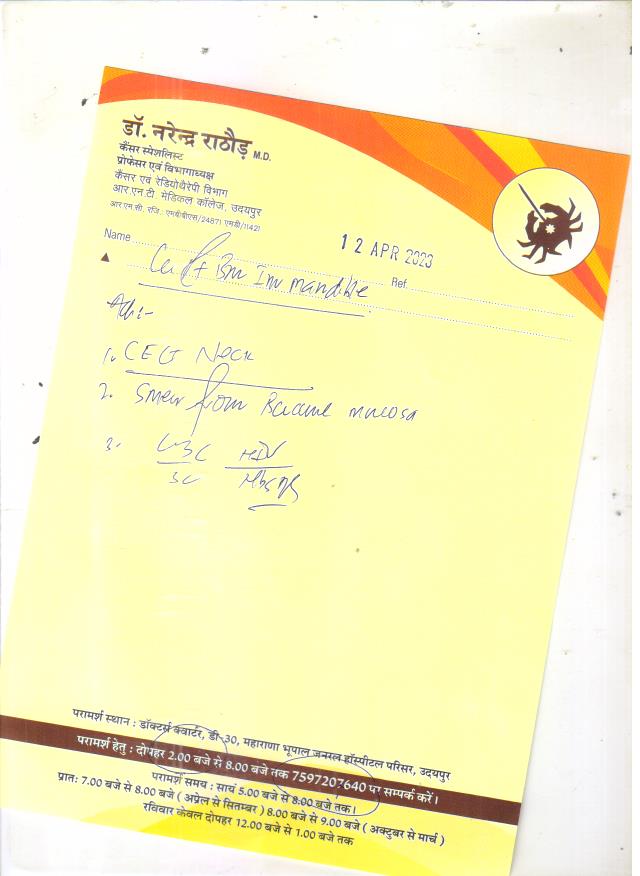 डॉ. नरेन्द्र राठौड़ M.D.
कैंसर स्पेशलिस्ट
प्रोफेसर एवं विभागाध्यक्ष
कैंसर एवं रेडियोथैरेपी विभाग
आर.एन.टी. मेडिकल कॉलेज, उदयपुर
आर.एम.सी. रजि. एमबीबीएस/24871 एमडी/11421
Name
12 APR 2023
Ref.
Bm Inv mandible
Adv:-
1. CECT Neck
2. Smear from Buccal mucosa
3. CBC HIV
HbsAg
परामर्श स्थान : डॉक्टर्स क्वार्टर, डी-30, महाराणा भूपाल जनरल हॉस्पीटल परिसर, उदयपुर
परामर्श हेतु : दोपहर 2.00 बजे से 8.00 बजे तक 7597207640 पर सम्पर्क करें।
परामर्श समय : सायं 5.00 बजे से 8:00 बजे तक।
प्रात: 7.00 बजे से 8.00 बजे ( अप्रेल से सितम्बर ) 8.00 बजे से 9.00 बजे ( अक्टुबर से मार्च )
रविवार केवल दोपहर 12.00 बजे से 1.00 बजे तक